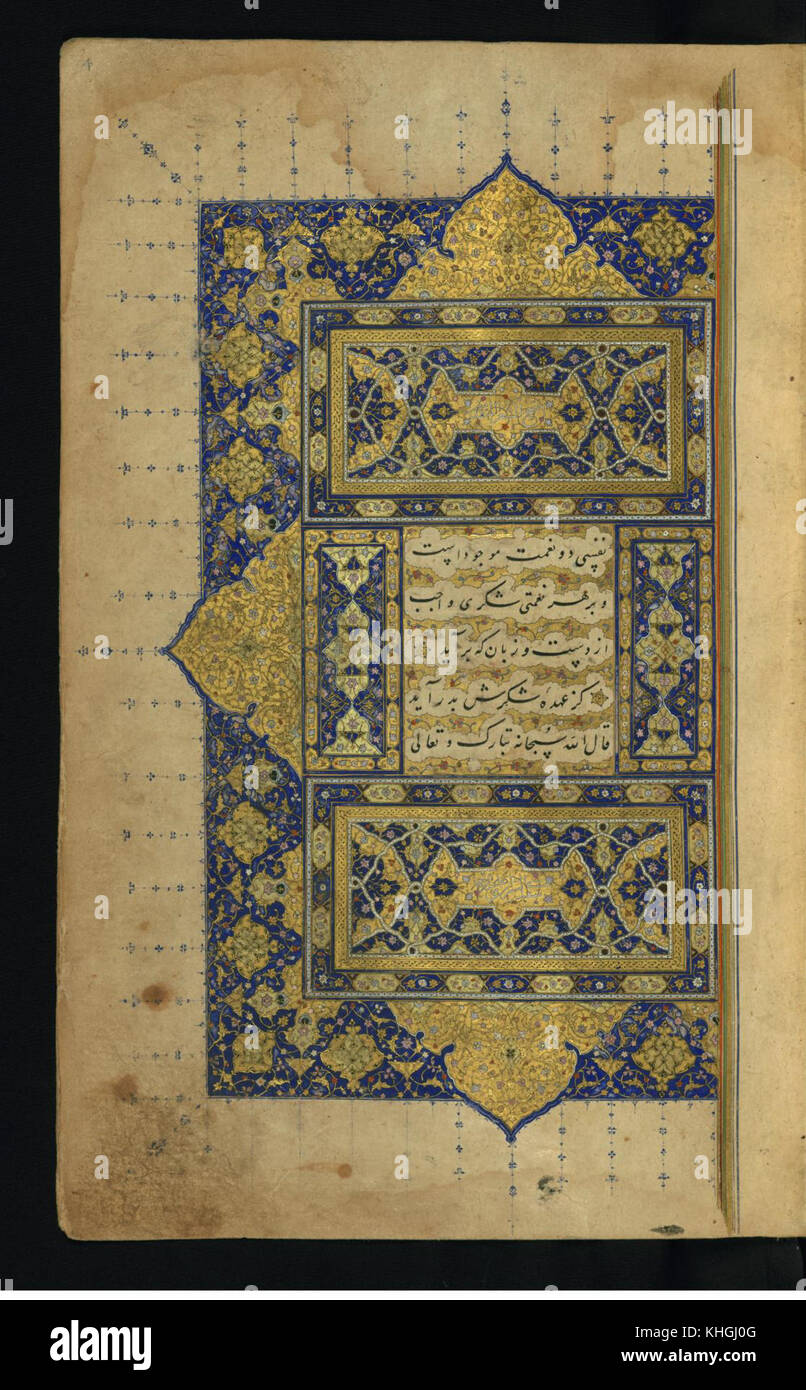 نفسی دو نعمت موجود است
و بر هر نعمتی شکری واجب
از دست و زبان که برآید
کز عهدهٔ شکرش بدر آید
قال الله سبحانه تبارک و تعالی
alamy
Image ID: KHGJ0G
www.alamy.com